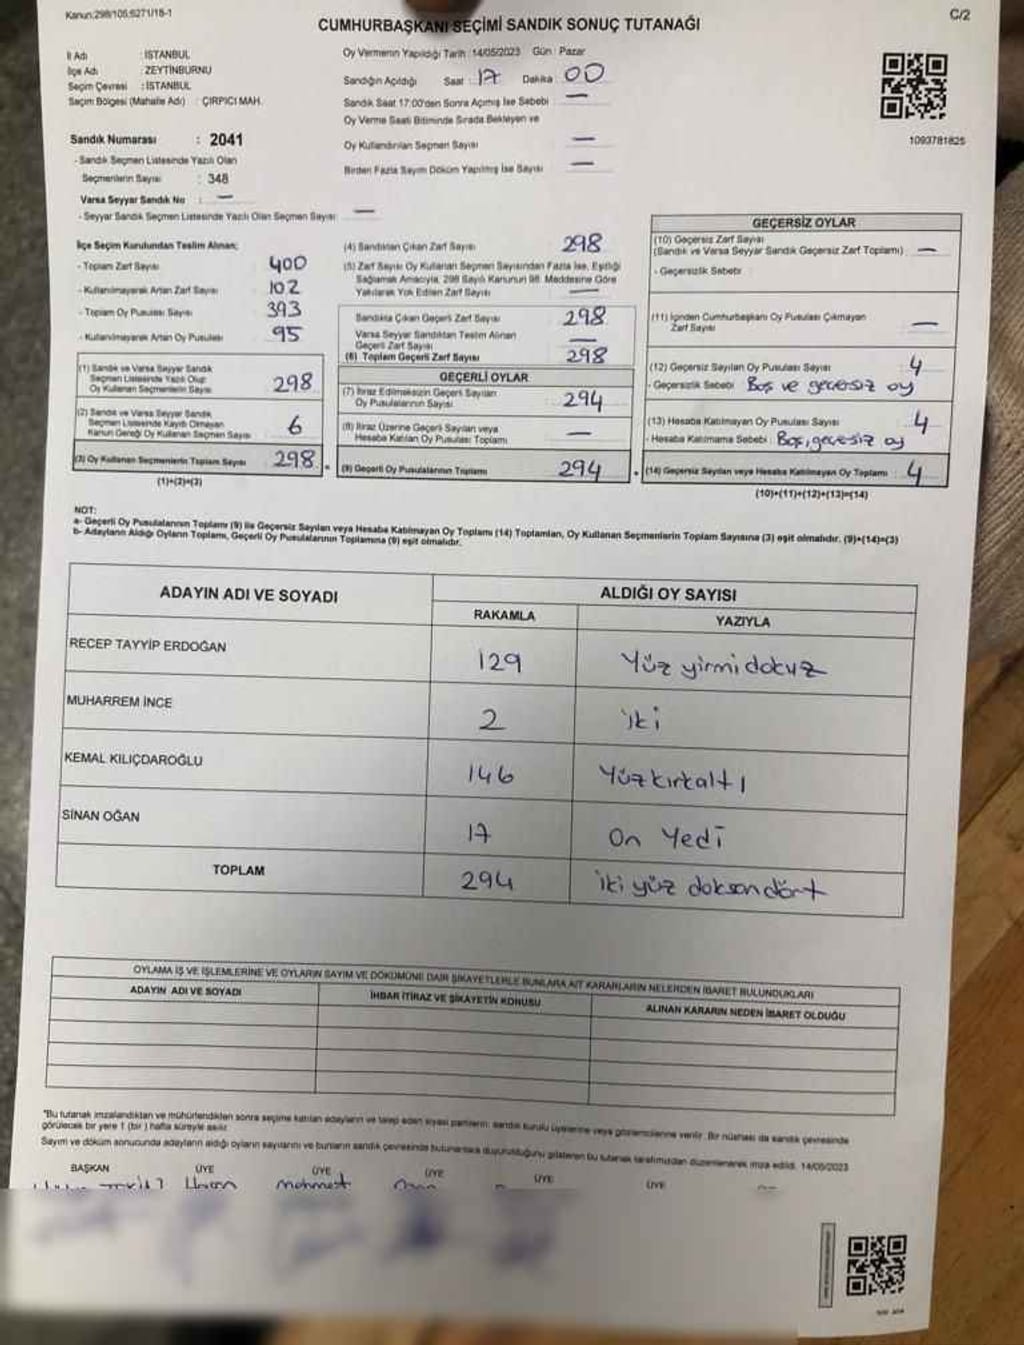 Kanun:298/105;6271/18-1
C/2
CUMHURBAŞKANI SEÇİMİ SANDIK SONUÇ TUTANAĞI
İl Adı : İSTANBUL
İlçe Adı : ZEYTİNBURNU
Seçim Çevresi : İSTANBUL
Seçim Bölgesi (Mahalle Adı) : ÇIRPICI MAH.
Oy Vermenin Yapıldığı Tarih : 14/05/2023 Gün : Pazar
Sandığın Açıldığı Saat : 17 Dakika : 00
Sandık Saat 17:00'den Sonra Açılmış İse Sebebi : —
Oy Verme Saati Bitiminde Sırada Bekleyen ve
Oy Kullandırılan Seçmen Sayısı —
Birden Fazla Sayım Döküm Yapılmış İse Sayısı —
1093781825
Sandık Numarası : 2041
- Sandık Seçmen Listesinde Yazılı Olan
Seçmenlerin Sayısı : 348
Varsa Seyyar Sandık No : —
- Seyyar Sandık Seçmen Listesinde Yazılı Olan Seçmen Sayısı: —
İlçe Seçim Kurulundan Teslim Alınan;
- Toplam Zarf Sayısı 400
- Kullanılmayarak Artan Zarf Sayısı 102
- Toplam Oy Pusulası Sayısı 393
- Kullanılmayarak Artan Oy Pusulası 95
(1) Sandık ve Varsa Seyyar Sandık
Seçmen Listesinde Yazılı Olup
Oy Kullanan Seçmenlerin Sayısı 298
(2) Sandık ve Varsa Seyyar Sandık
Seçmen Listesinde Kayıtlı Olmayan
Kanun Gereği Oy Kullanan Seçmen Sayısı 6
(3) Oy Kullanan Seçmenlerin Toplam Sayısı 298
(1)+(2)=(3)
(4) Sandıktan Çıkan Zarf Sayısı 298
(5) Zarf Sayısı Oy Kullanan Seçmen Sayısından Fazla İse, Eşitliği
Sağlamak Amacıyla, 298 Sayılı Kanunun 98. Maddesine Göre
Yakılarak Yok Edilen Zarf Sayısı —
Sandıkta Çıkan Geçerli Zarf Sayısı 298
Varsa Seyyar Sandıktan Teslim Alınan
Geçerli Zarf Sayısı —
(6) Toplam Geçerli Zarf Sayısı 298
GEÇERLİ OYLAR
(7) İtiraz Edilmeksizin Geçerli Sayılan
Oy Pusulalarının Sayısı 294
(8) İtiraz Üzerine Geçerli Sayılan veya
Hesaba Katılan Oy Pusulası Toplamı —
(9) Geçerli Oy Pusulalarının Toplamı 294
GEÇERSİZ OYLAR
(10) Geçersiz Zarf Sayısı
(Sandık ve Varsa Seyyar Sandık Geçersiz Zarf Toplamı) —
- Geçersizlik Sebebi :
(11) İçinden Cumhurbaşkanı Oy Pusulası Çıkmayan
Zarf Sayısı —
(12) Geçersiz Sayılan Oy Pusulası Sayısı 4
- Geçersizlik Sebebi : Boş ve geçersiz oy
(13) Hesaba Katılmayan Oy Pusulası Sayısı 4
- Hesaba Katılmama Sebebi : Boş, geçersiz oy
(14) Geçersiz Sayılan veya Hesaba Katılmayan Oy Toplamı 4
(10)+(11)+(12)+(13)=(14)
NOT:
a- Geçerli Oy Pusulalarının Toplamı (9) ile Geçersiz Sayılan veya Hesaba Katılmayan Oy Toplamı (14) Toplamları, Oy Kullanan Seçmenlerin Toplam Sayısına (3) eşit olmalıdır. (9)+(14)=(3)
b- Adayların Aldığı Oyların Toplamı, Geçerli Oy Pusulalarının Toplamına (9) eşit olmalıdır.
ADAYIN ADI VE SOYADI ALDIĞI OY SAYISI
RAKAMLA YAZIYLA
RECEP TAYYİP ERDOĞAN 129 Yüz yirmi dokuz
MUHARREM İNCE 2 iki
KEMAL KILIÇDAROĞLU 146 Yüz kırk altı
SİNAN OĞAN 17 On Yedi
TOPLAM 294 iki yüz doksan dört
OYLAMA İŞ VE İŞLEMLERİNE VE OYLARIN SAYIM VE DÖKÜMÜNE DAİR ŞİKAYETLERLE BUNLARA AİT KARARLARIN NELERDEN İBARET BULUNDUKLARI
ADAYIN ADI VE SOYADI İHBAR İTİRAZ VE ŞİKAYETİN KONUSU ALINAN KARARIN NEDEN İBARET OLDUĞU
*Bu tutanak imzalandıktan ve mühürlendikten sonra seçime katılan adayların ve talep eden siyasi partilerin sandık kurulu üyelerine veya gözlemcilerine verilir. Bir nüshası da sandık çevresinde
görülecek bir yere 1 (bir) hafta süreyle asılır.
Sayım ve döküm sonucunda adayların aldığı oyların sayılarını ve bunların sandık çevresinde bulunanlara duyurulduğunu gösteren bu tutanak tarafımızdan düzenlenerek imza edildi. 14/05/2023
BAŞKAN ÜYE ÜYE ÜYE ÜYE ÜYE
Mehmet